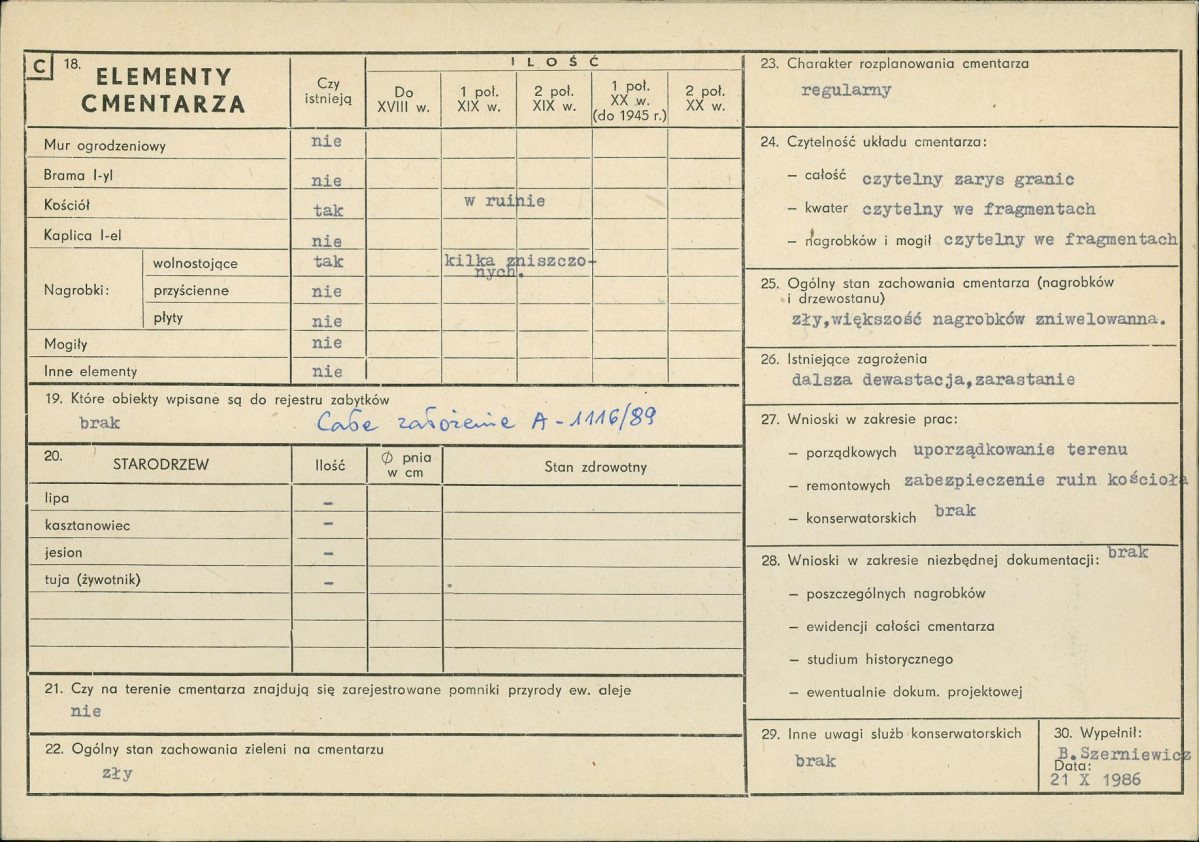 C 18. ELEMENTY CMENTARZA
Czy istnieją
ILOŚĆ
Do XVIII w.
1 poł. XIX w.
2 poł. XIX w.
1 poł. XX w. (do 1945 r.)
2 poł. XX w.
Mur ogrodzeniowy nie
Brama l-yl nie
Kościół tak w ruinie
Kaplica l-el nie
Nagrobki:
wolnostojące tak kilka zniszczo-
nych.
przyścienne nie
płyty nie
Mogiły nie
Inne elementy nie
19. Które obiekty wpisane są do rejestru zabytków
brak Całe założenie A-1116/89
20. STARODRZEW Ilość Ø pnia w cm Stan zdrowotny
lipa –
kasztanowiec –
jesion –
tuja (żywotnik) –
21. Czy na terenie cmentarza znajdują się zarejestrowane pomniki przyrody ew. aleje
nie
22. Ogólny stan zachowania zieleni na cmentarzu
zły
23. Charakter rozplanowania cmentarza
regularny
24. Czytelność układu cmentarza:
– całość czytelny zarys granic
– kwater czytelny we fragmentach
– nagrobków i mogił czytelny we fragmentach
25. Ogólny stan zachowania cmentarza (nagrobków
i drzewostanu)
zły,większość nagrobków zniwelowanna.
26. Istniejące zagrożenia
dalsza dewastacja,zarastanie
27. Wnioski w zakresie prac:
– porządkowych uporządkowanie terenu
– remontowych zabezpieczenie ruin kościoła
– konserwatorskich brak
28. Wnioski w zakresie niezbędnej dokumentacji: brak
– poszczególnych nagrobków
– ewidencji całości cmentarza
– studium historycznego
– ewentualnie dokum. projektowej
29. Inne uwagi służb konserwatorskich
brak
30. Wypełnił:
B.Szerniewicz
Data:
21 X 1986